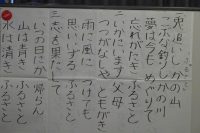 一 兎追いし かの山
こぶな釣りし かの川
夢は今も めぐりて
忘れがたき ふるさと
二 いかにいます 父母
つつがなしや ともがき
雨に風に つけても
思いいずる ふるさと
三 志を果たして
いつの日にか 帰らん
山は青き ふるさと
水は清き ふるさと